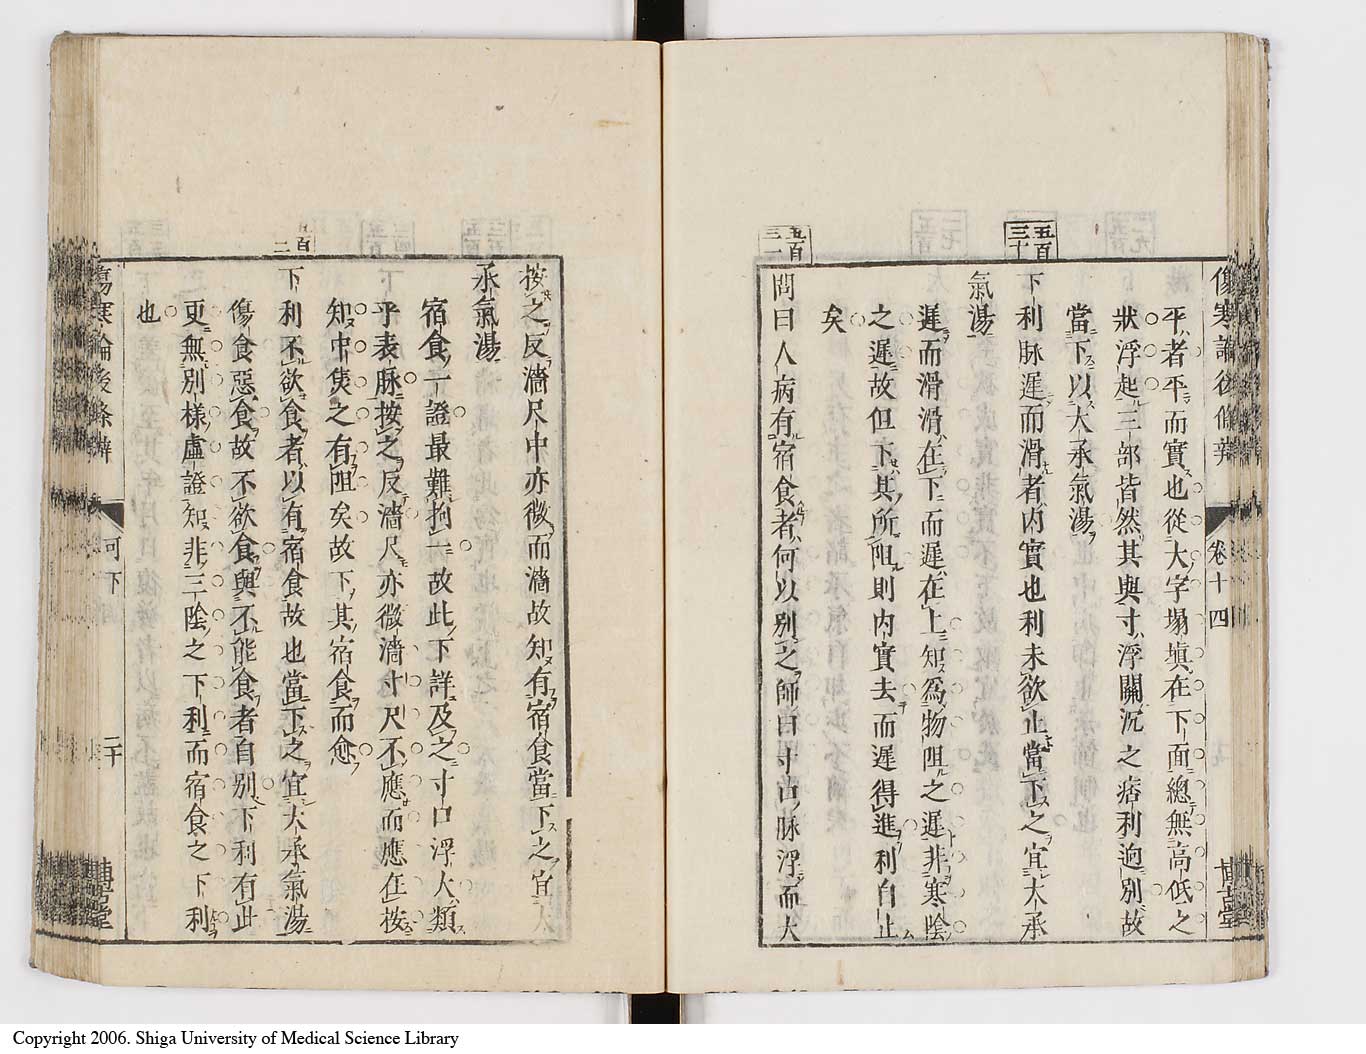 傷寒論後條辨
卷十四
博古堂
平者平而實也從大字塌塡在下面總無高低之
狀浮起三部皆然其與寸浮關沉之痞利逈別故
當下以大承氣湯
五百三十
下利脉遲而滑者內實也利未欲止當下之宜大承
氣湯
遲而滑滑在下而遲在上知爲物阻之遲非寒陰
之遲故但下其所阻則內實去而遲得進利自止
矣
五百三一
問曰人病有宿食者何以別之師曰寸口脉浮而大
按之反濇尺中亦微而濇故知有宿食當下之宜大
承氣湯
宿食一證最難拘一故此下詳及之寸口浮大類
乎表脉按之反濇尺亦微濇寸尺不應而應在按
知中焦之有阻矣故下其宿食而愈
下利不欲食者以有宿食故也當下之宜大承氣湯
傷食惡食故不欲食與不能食者自別下利有此
更無別樣虛證知非三陰之下利而宿食之下利
也
傷寒論後條辨
可下
二十
博古堂
Copyright 2006. Shiga University of Medical Science Library